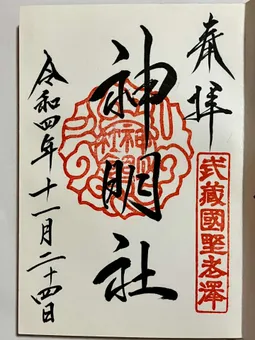 奉拝
武蔵國野老澤
神明社
令和四年十一月二十四日